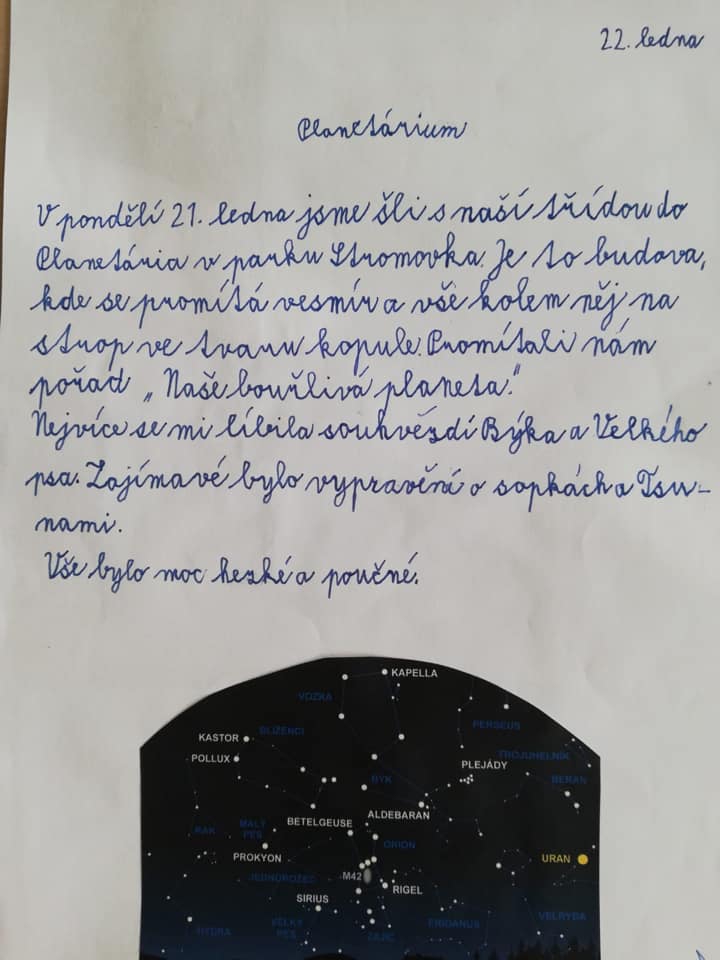 22. ledna
Planetárium
V pondělí 21. ledna jsme šli s naší třídou do
Planetária v parku Stromovka. Je to budova,
kde se promítá vesmír a vše kolem něj na
strop ve tvaru kopule. Promítali nám
pořad „Naše bouřlivá planeta."
Nejvíce se mi líbila souhvězdí Býka a Velkého
psa. Zajímavé bylo vypravění o sopkách a Tsu-
nami.
Vše bylo moc hezké a poučné.
KAPELLA
VOZKA
PERSEUS
KASTOR BLÍŽENCI
TROJÚHELNÍK
POLLUX
PLEJÁDY
BÝK BERAN
ALDEBARAN
BETELGEUSE
RAK MALÝ PES
ORION
PROKYON URAN
JEDNOROŽEC M42
RIGEL
SIRIUS
VELKÝ PES ERIDANUS VELRYBA
HYDRA ZAJÍC